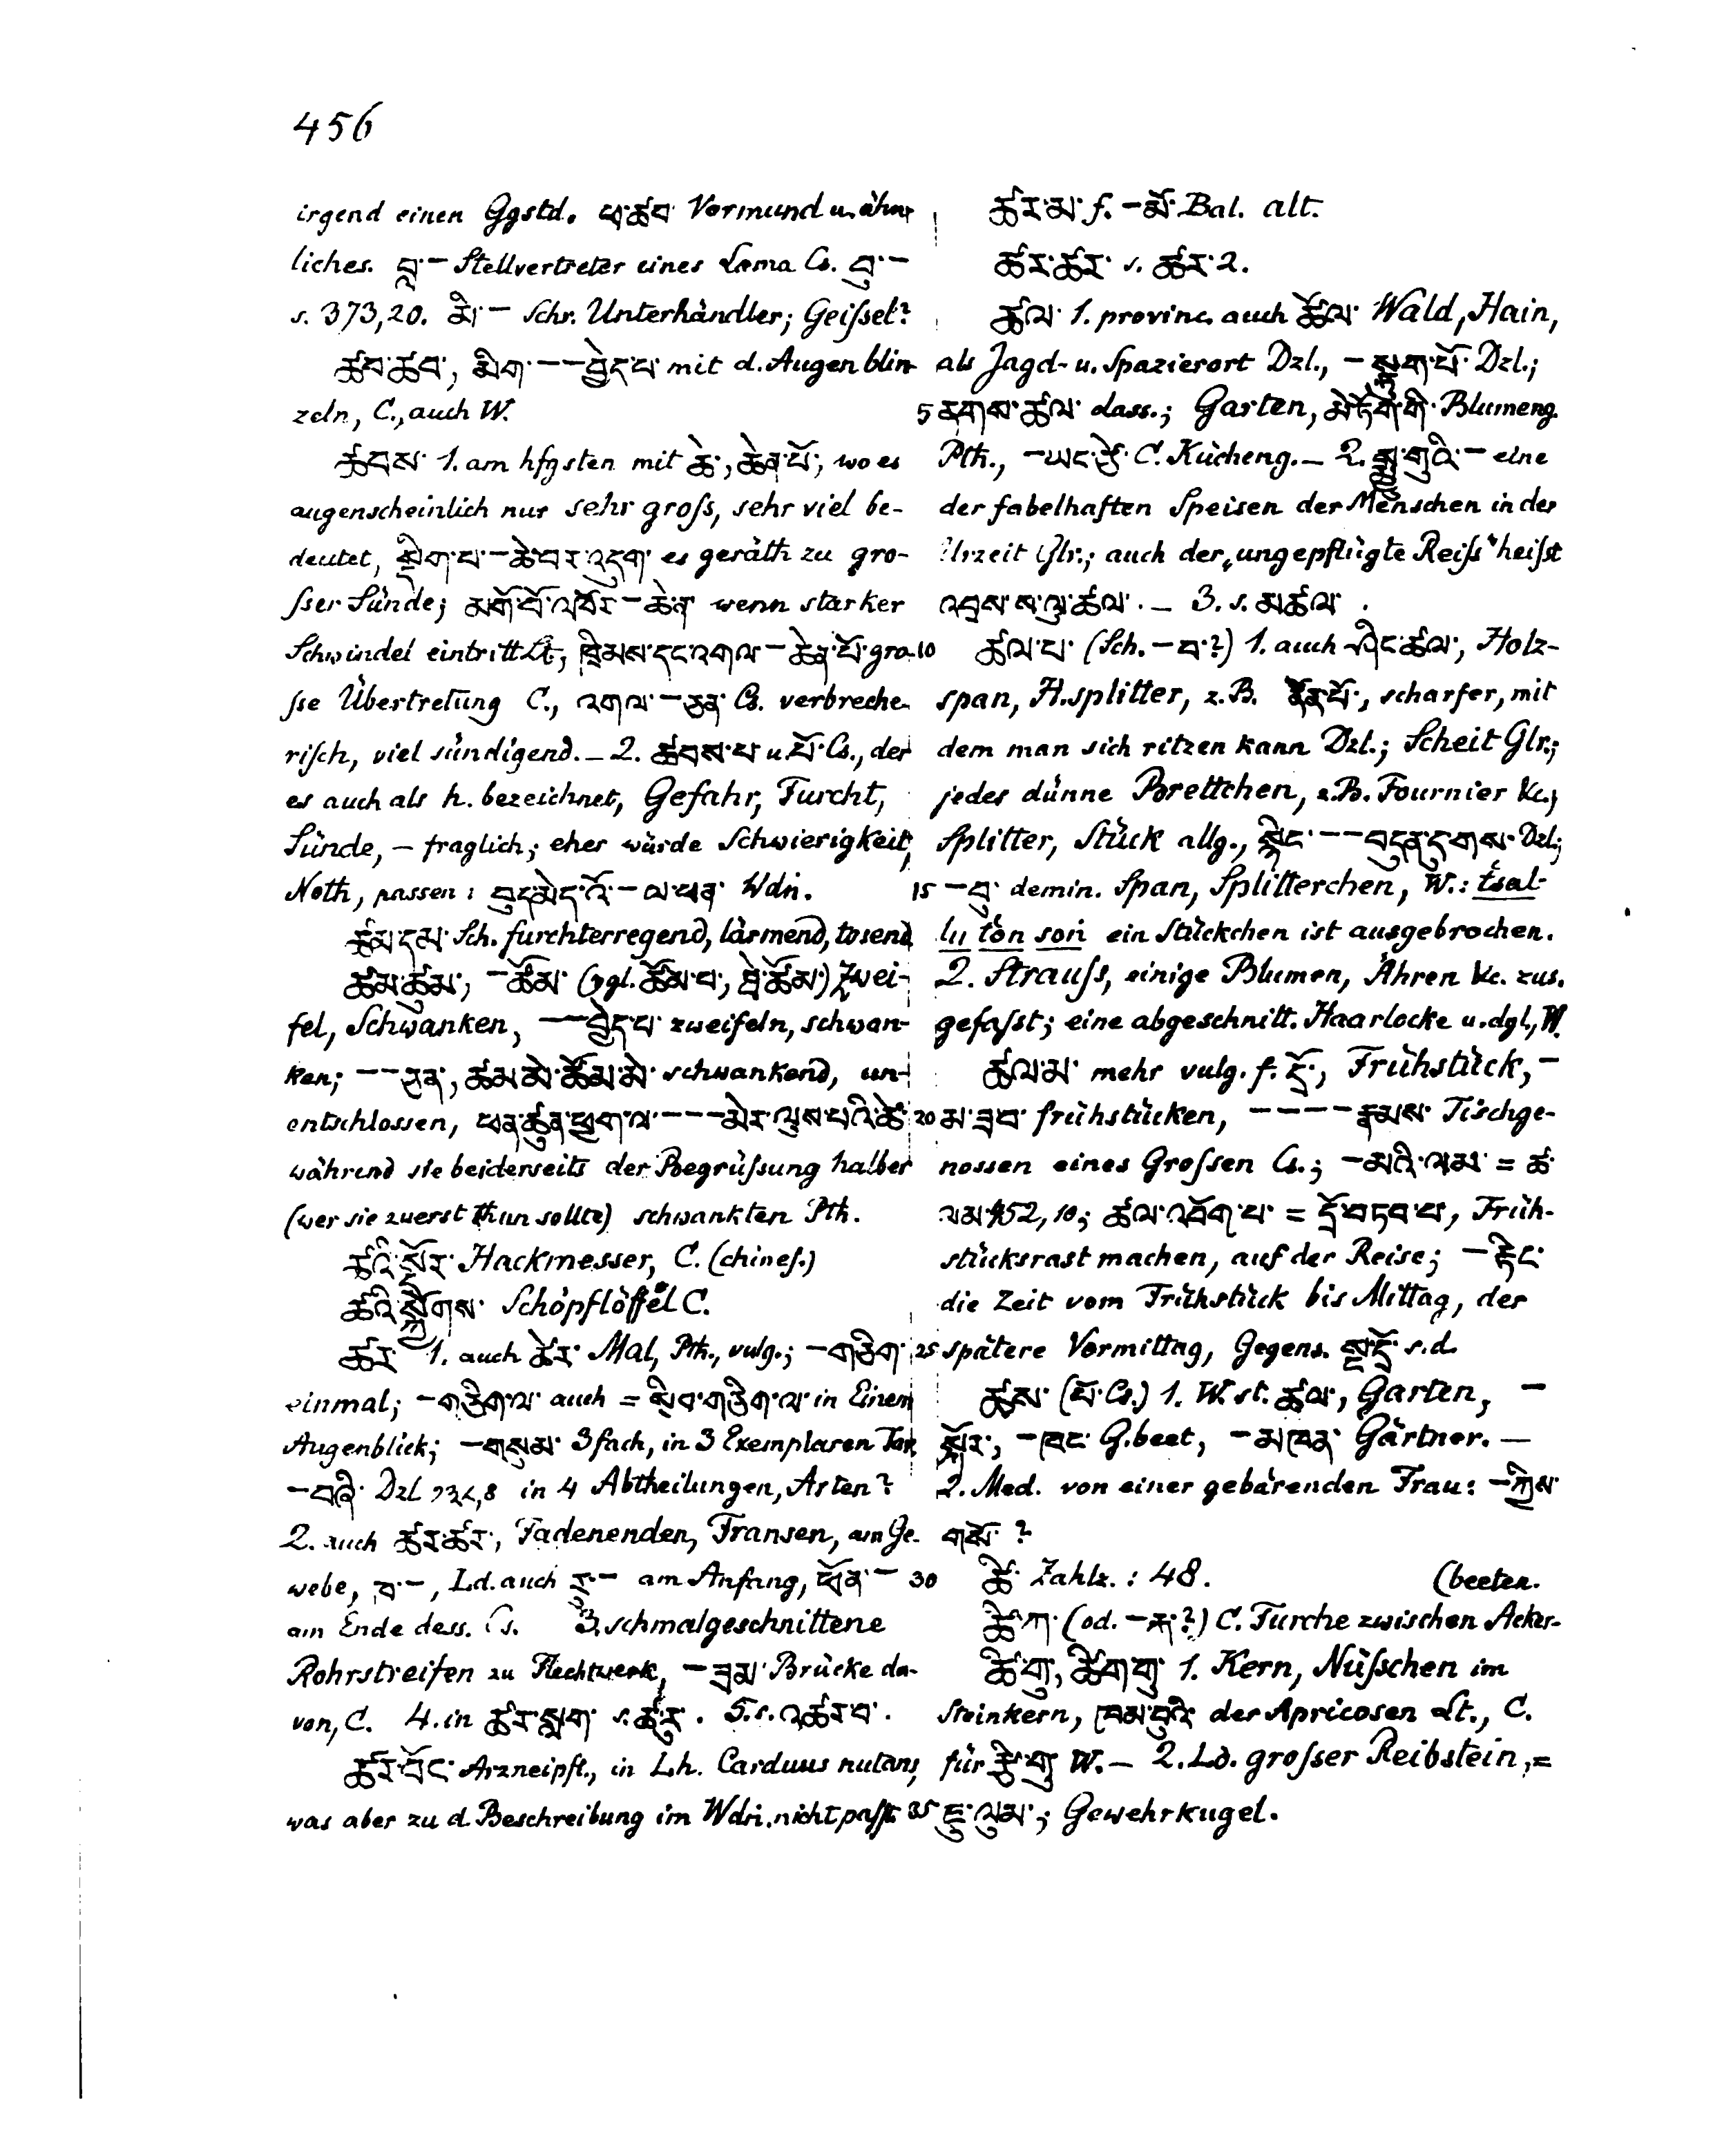 456
irgend einen Ggstd. ཕ་ཚབ་ Vormund u. ähn-
liches. བླ་– Stellvertreter eines Lama Cs. བུ་–
s. 373,20. མི་– Schr. Unterhändler; Geissel?
ཚབ་ཚབ་, མིག་––བྱེད་པ་ mit d. Augen blin-
zeln, C., auch W.
ཚབས་ 1. am hfgsten mit ཆེ་, ཆེན་པོ་, wo es
augenscheinlich nur sehr gross, sehr viel be-
deutet, སྡིག་པ་–ཆེ་བར་འདུག་ es geräth zu gro-
sser Sünde; མགོ་བོ་འཁོར་–ཆེན་ wenn starker
Schwindel eintritt Lt., ཁྲིམས་དང་འགལ་–ཆེན་པོ་ gro-
sse Übertretung C., འགལ་–ཅན་ Cs. verbreche-
risch, viel sündigend. – 2. ཚབས་པ་ u. པོ་ Cs., der
es auch als h. bezeichnet, Gefahr, Furcht,
Sünde, – fraglich; eher würde Schwierigkeit,
Noth, passen: བུད་མེད་འོ་–ལ་ཕན་ Wdn.
ཚམ་དམ་ Sch. furchterregend, lärmend, tosend
ཚམ་ཚུམ་, –ཚོམ་ (vgl. ཚོམ་པ་, ཐེ་ཚོམ་) Zwei-
fel, Schwanken, ––བྱེད་པ་ zweifeln, schwan-
ken; ––ཅན་, ཚམ་མེ་ཚོམ་མེ་ schwankend, un-
entschlossen, ཕན་ཚུན་ཕྱག་ལ་–––མེར་ལུས་པའི་ཚེ་
während sie beiderseits der Begrüssung halber
(wer sie zuerst thun sollte) schwankten Pth.
ཚའི་སྤོར་ Hackmesser, C. (chines.)
ཚའི་སྐྱོགས་ Schöpflöffel C.
ཚར་ 1. auch ཚེར་ Mal, Pth., vulg.; –གཅིག་
einmal; –གཅིག་ལ་ auch = སྲིབ་གཅིག་ལ་ in Einem
Augenblick; –གསུམ་ 3fach, in 3 Exemplaren Tar.
–བཞི་ Dzl ,8 in 4 Abtheilungen, Arten?
2. auch ཚར་ཚར་, Fadenenden, Fransen, am Ge-
webe, ཁ་–, Ld. auch –– am Anfang, ཕོན་–
am Ende dess. Cs. 3. schmalgeschnittene
Rohrstreifen zu Flechtwerk, –ཟམ་ Brücke da-
von, C. 4. in ཚར་སྨག་ s. ཚུར་. 5. s. འཚར་བ་.
ཚར་བོང་ Arzneipfl., in Lh. Carduus nutans,
was aber zu d. Beschreibung im Wdn. nicht passt
ཚར་མ་ f. –མོ་ Bal. alt.
ཚར་ཚར་ s. ཚར་ 2.
ཚལ་ 1. provinc. auch ཚོལ་ Wald, Hain,
als Jagd- u. Spazierort Dzl., –སྟུག་པོ་ Dzl.;
5 ནགས་ཚལ་ dass.; Garten, མེ་ཏོག་གི་ Blumeng.
Pth., –ཡང་ཙེ་ C. Kücheng. – 2. མྱུ་གུའི་– eine
der fabelhaften Speisen der Menschen in der
Urzeit Glr.; auch der „ungepflügte Reiss“ heisst
འབྲས་ས་ལུ་ཚལ་. – 3. s. མཚལ་.
10 ཚལ་པ་ (Sch. –བ་?) 1. auch ཤིང་ཚལ་, Holz-
span, H.splitter, z.B. རྣོན་པོ་, scharfer, mit
dem man sich ritzen kann Dzl.; Scheit Glr.;
jedes dünne Brettchen, z.B. Fournier &c.;
Splitter, Stück allg., སྙིང་––བདུན་དུ་གས་ Dzl.;
15 –བུ་ demin. Span, Splitterchen, W.: t́sal-
lu tʽon soṅ ein Stückchen ist ausgebrochen.
2. Strauss, einige Blumen, Ähren &c. zus.
gefasst; eine abgeschnitt. Haarlocke u. dgl., W.
ཚལ་མ་ mehr vulg. f. དྲོ་, Frühstück, –
20 མ་ཟབ་ frühstücken, ––––རྣམས་ Tischge-
nossen eines Grossen Cs.; –མའི་ལམ་ = ཚ་
ལམ་ 452,10; ཚལ་འབོག་པ་ = དྲོ་བཏབ་པ་, Früh-
stücksrast machen, auf der Reise; –རྟིང་
die Zeit vom Frühstück bis Mittag, der
25 spätere Vormittag, Gegens. སྔ་དྲོ་ s.d.
ཚས་ (པོ་ Cs.) 1. W. st. ཚལ་, Garten, –
སྐོར་, –ཁང་ G.beet, –མཁན་ Gärtner. –
2. Med. von einer gebärenden Frau: –ཀྱིས་
གསོ་?
30 ཚི་ Zahlz.: 48. (beeten.
ཚི་ཀ་ (od. –རྐ་?) C. Furche zwischen Acker-
ཚི་གུ་, ཚིག་གུ་ 1. Kern, Nüsschen im
Steinkern, ཁམ་བུའི་ der Apricosen Lt., C.
für རྩི་གུ་ W. – 2. Ld. grosser Reibstein, =
35 ཇུ་ལུམ་; Gewehrkugel.